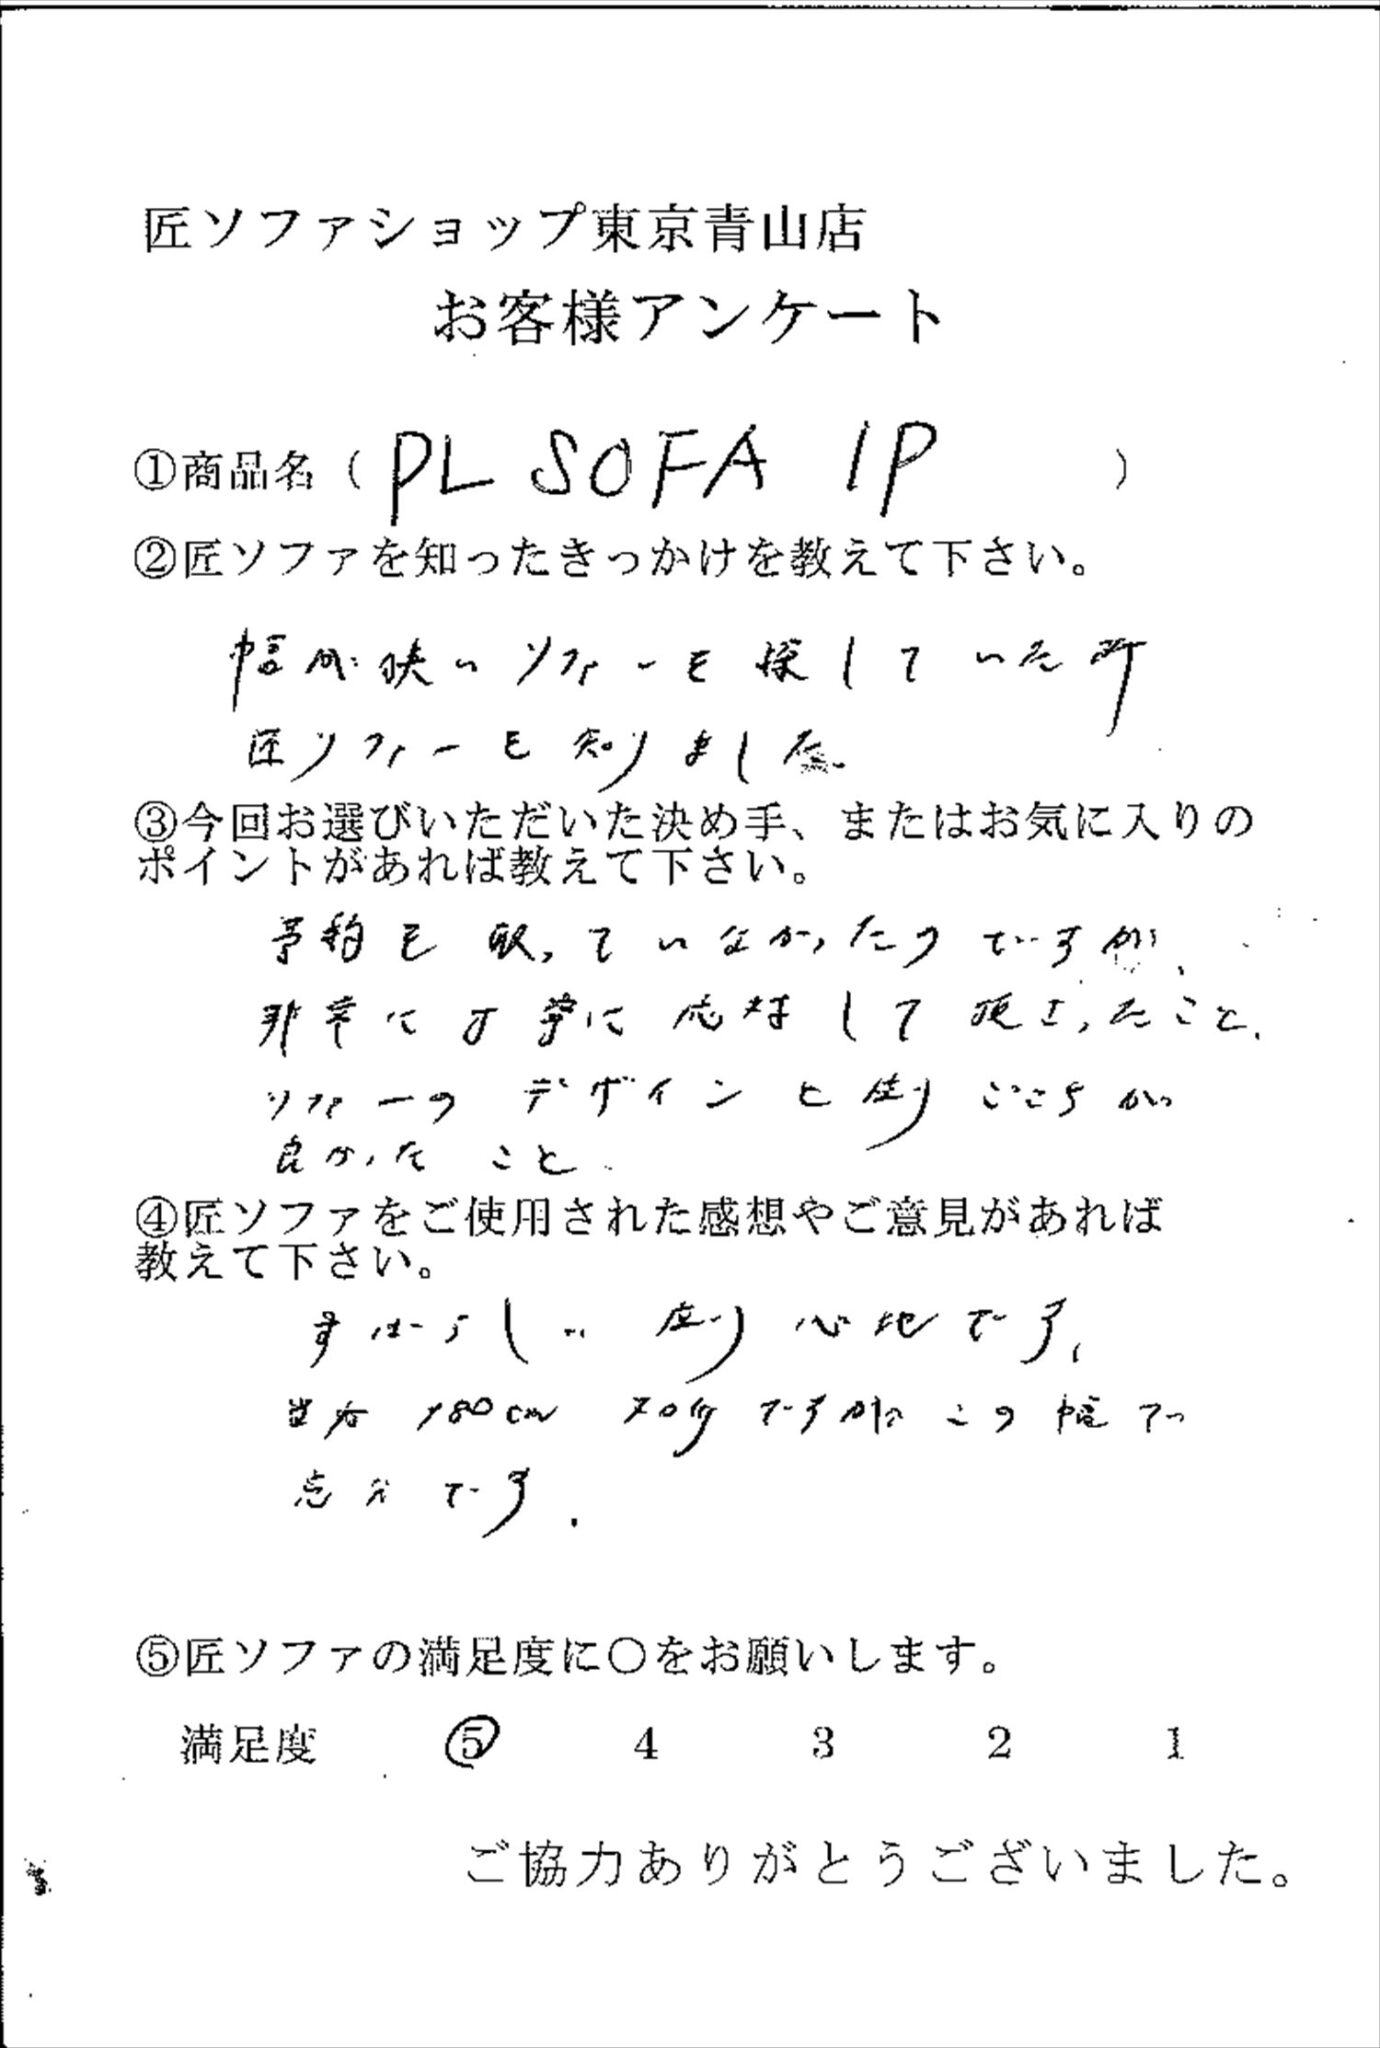 匠ソファショップ東京青山店
お客様アンケート
①商品名（ PL SOFA 1P ）
②匠ソファを知ったきっかけを教えて下さい。
幅が狭いソファーを探していた所
匠ソファーを知りました。
③今回お選びいただいた決め手、またはお気に入りの
ポイントがあれば教えて下さい。
予約を取っていなかったのですが、
非常に丁寧に応対して頂きったこと、
ソファーのデザインと座りごこちが
良かったこと
④匠ソファをご使用された感想やご意見があれば
教えて下さい。
すばらしい座り心地です、
当方180cm 70kgですがこの幅で
充分です.
⑤匠ソファの満足度に○をお願いします。
満足度 5 4 3 2 1
ご協力ありがとうございました。